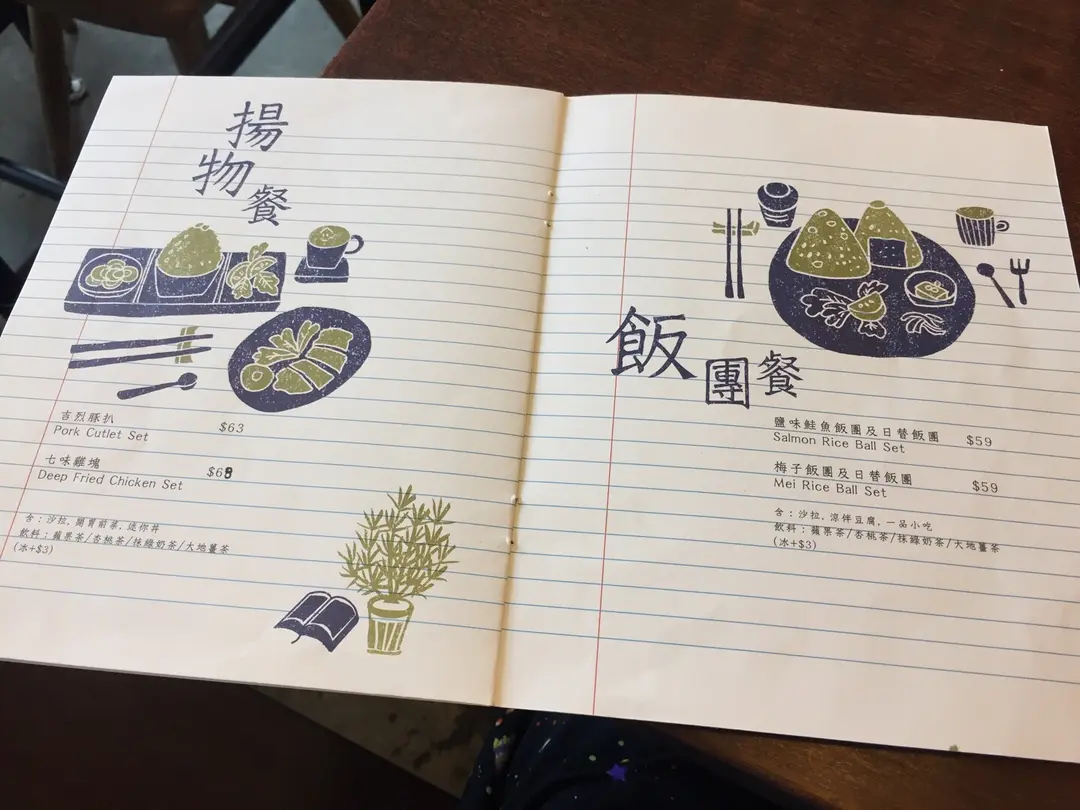 揚物餐
吉烈豚扒
Pork Cutlet Set $63
七味雞塊
Deep Fried Chicken Set $68
含：沙拉, 開胃前菜, 迷你丼
飲料：蘋果茶/杏桃茶/抹綠奶茶/大地薑茶
(冰+$3)
飯團餐
鹽味鮭魚飯團及日替飯團 $59
Salmon Rice Ball Set
梅子飯團及日替飯團 $59
Mei Rice Ball Set
含：沙拉, 涼伴豆腐, 一品小吃
飲料：蘋果茶/杏桃茶/抹綠奶茶/大地薑茶
(冰+$3)